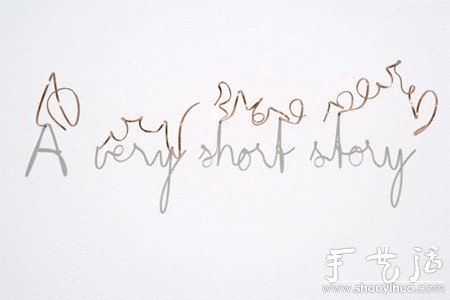 A very short story
手艺活
www.shouyihuo.com